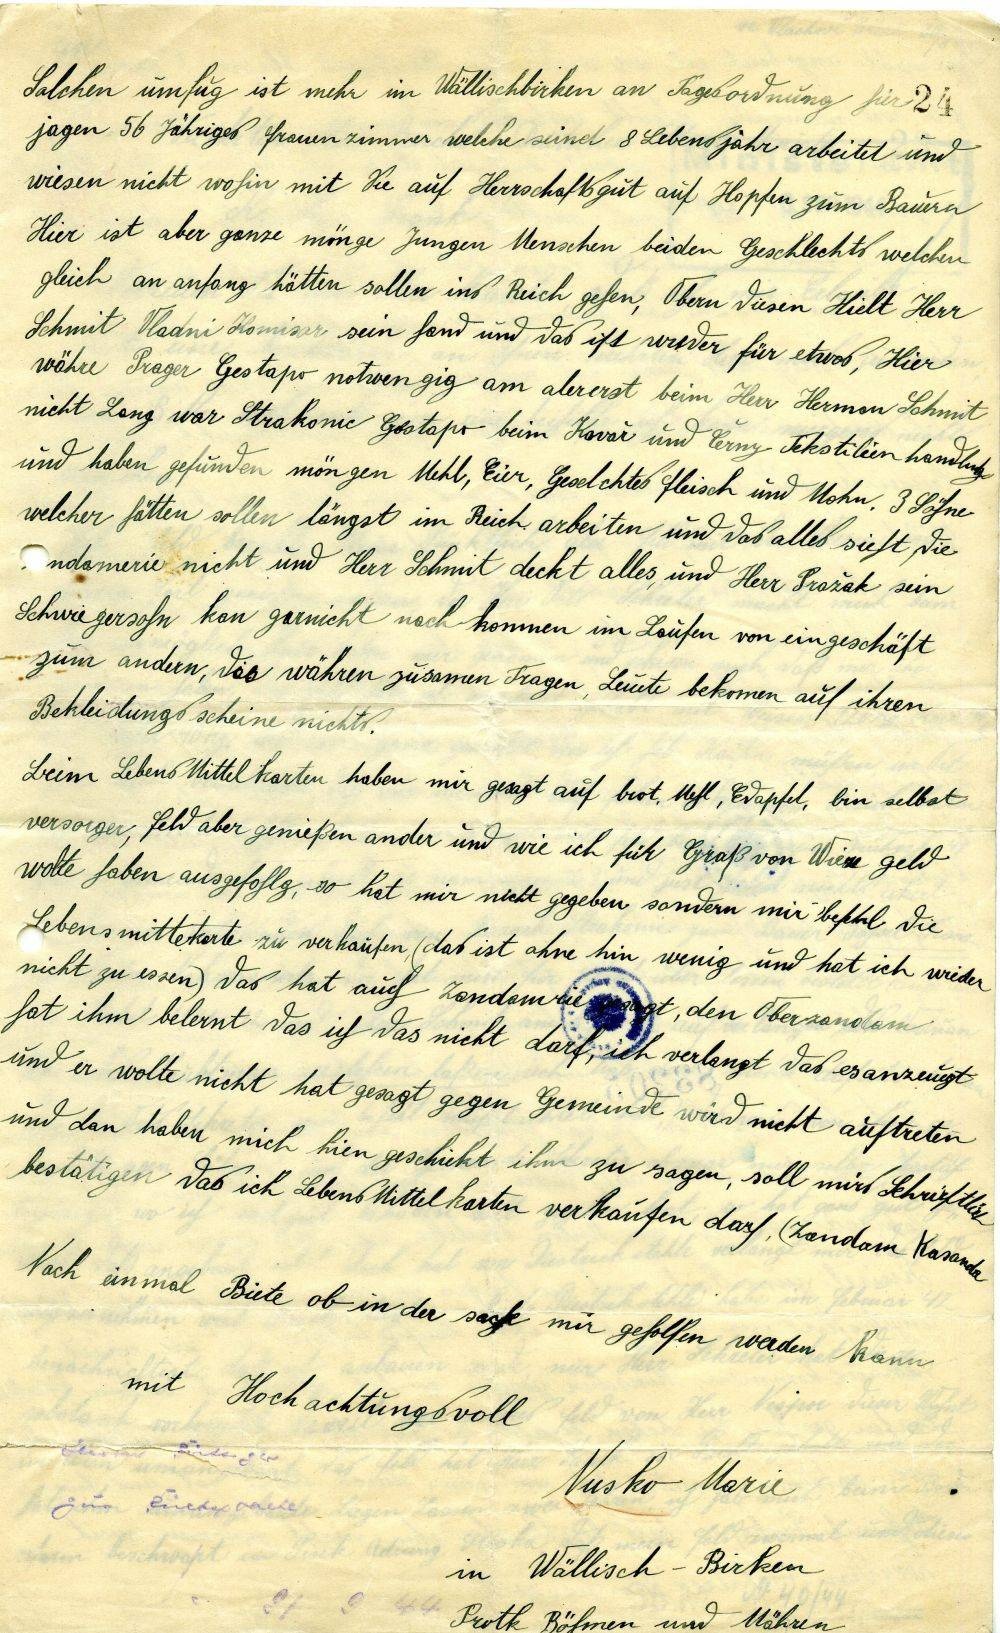 24
Solchen umfug ist mehr im Wällischbirken an Tagesordnung für
jagen 56 Jähriges frauenzimmer welche seind 8 Lebensjahr arbeitet und
wiesen nicht wohin mit Sie auf Herrschaftsgut auf Hopfen zum Bauern
Hier ist aber ganze mönge Jungen Menschen beiden Geschlechts welchen
gleich an anfang hätten sollen ins Reich gehen, Obern diesen Hielt Herr
Schmit Vladni Komisar sein hand und das ist wieder für etwas, Hier
währe Prager Gestapo notwengig am alererst beim Herr Herman Schmit
nicht Lang war Strakonic Gestapo beim Kovář und Černy Tekstilien handlung
und haben gefunden möngen Mehl, Eier, Geselchtes fleisch und Mohn. 3 Söhne
welcher hätten sollen längst im Reich arbeiten und das alles sieht die
ndamerie nicht und Herr Schmit deckt alles, und Herr Pražak sein
Schwiegersohn kan garnicht nach kommen im Laufen von ein geschäft
zum andern, das währen zusamen Tragen, Leute bekomen auf ihren
Bekleidungsscheine nichts.
Beim LebensMittelkarten haben mir gesagt auf brot, Mehl, Edapfel, bin selbst
versorger, feld aber genießen ander und wie ich für Graß von Wiese geld
wolte haben ausgefohlg, so hat mir nicht gegeben sondern mir befehl die
Lebensmittekarte zu verkaufen (das ist ohne hin wenig und hat ich wieder
nicht zu essen) das hat auch Zandamrie gesagt, den Oberzandam
hat ihm belernt das ich das nicht darf, ich verlangt das es anzeugt
und er wolte nicht hat gesagt gegen Gemeinde wird nicht auftreten
und dan haben mich hien geschickt ihm zu sagen, soll mirs Schriftlich
bestätigen das ich LebensMittelkarten verkaufen darf, (Zandam Kasanda
Noch einmal Biete ob in der sache mir geholfen werden kann
mit Hochachtungsvoll
Nusko Marie
in Wällisch-Birken
Protk Böhmen und Mähren